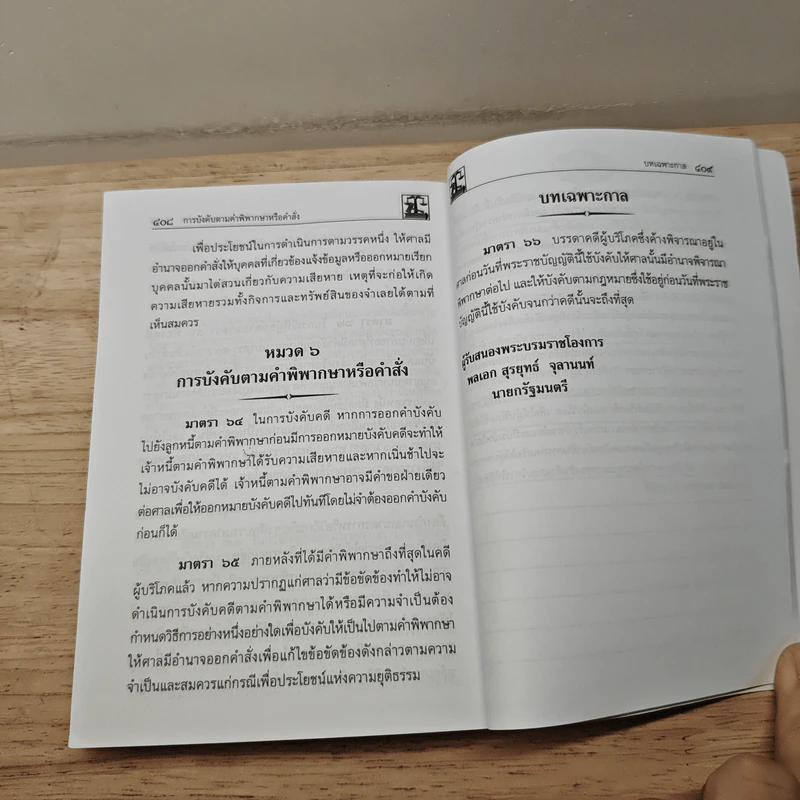 ๔๐๘ การบังคับตามคำพิพากษาหรือคำสั่ง
เพื่อประโยชน์ในการดำเนินการตามวรรคหนึ่ง ให้ศาลมี
อำนาจออกคำสั่งให้บุคคลที่เกี่ยวข้องแจ้งข้อมูลหรือออกหมายเรียก
บุคคลนั้นมาไต่สวนเกี่ยวกับความเสียหาย เหตุที่จะก่อให้เกิด
ความเสียหายรวมทั้งกิจการและทรัพย์สินของจำเลยได้ตามที่
เห็นสมควร
หมวด ๖
การบังคับตามคำพิพากษาหรือคำสั่ง
มาตรา ๖๔ ในการบังคับคดี หากการออกคำบังคับ
ไปยังลูกหนี้ตามคำพิพากษาก่อนมีการออกหมายบังคับคดีจะทำให้
เจ้าหนี้ตามคำพิพากษาได้รับความเสียหายและหากเนิ่นช้าไปจะ
ไม่อาจบังคับคดีได้ เจ้าหนี้ตามคำพิพากษาอาจมีคำขอฝ่ายเดียว
ต่อศาลเพื่อให้ออกหมายบังคับคดีไปทันทีโดยไม่จำต้องออกคำบังคับ
ก่อนก็ได้
มาตรา ๖๕ ภายหลังที่ได้มีคำพิพากษาถึงที่สุดในคดี
ผู้บริโภคแล้ว หากความปรากฏแก่ศาลว่ามีข้อขัดข้องทำให้ไม่อาจ
ดำเนินการบังคับคดีตามคำพิพากษาได้หรือมีความจำเป็นต้อง
กำหนดวิธีการอย่างหนึ่งอย่างใดเพื่อบังคับให้เป็นไปตามคำพิพากษา
ให้ศาลมีอำนาจออกคำสั่งเพื่อแก้ไขข้อขัดข้องดังกล่าวตามความ
จำเป็นและสมควรแก่กรณีเพื่อประโยชน์แห่งความยุติธรรม
บทเฉพาะกาล ๔๐๙
บทเฉพาะกาล
มาตรา ๖๖ บรรดาคดีผู้บริโภคซึ่งค้างพิจารณาอยู่ใน
ศาลก่อนวันที่พระราชบัญญัตินี้ใช้บังคับให้ศาลนั้นมีอำนาจพิจารณา
พิพากษาต่อไป และให้บังคับตามกฎหมายซึ่งใช้อยู่ก่อนวันที่พระราช
บัญญัตินี้ใช้บังคับจนกว่าคดีนั้นจะถึงที่สุด
ผู้รับสนองพระบรมราชโองการ
พลเอก สุรยุทธ์ จุลานนท์
นายกรัฐมนตรี